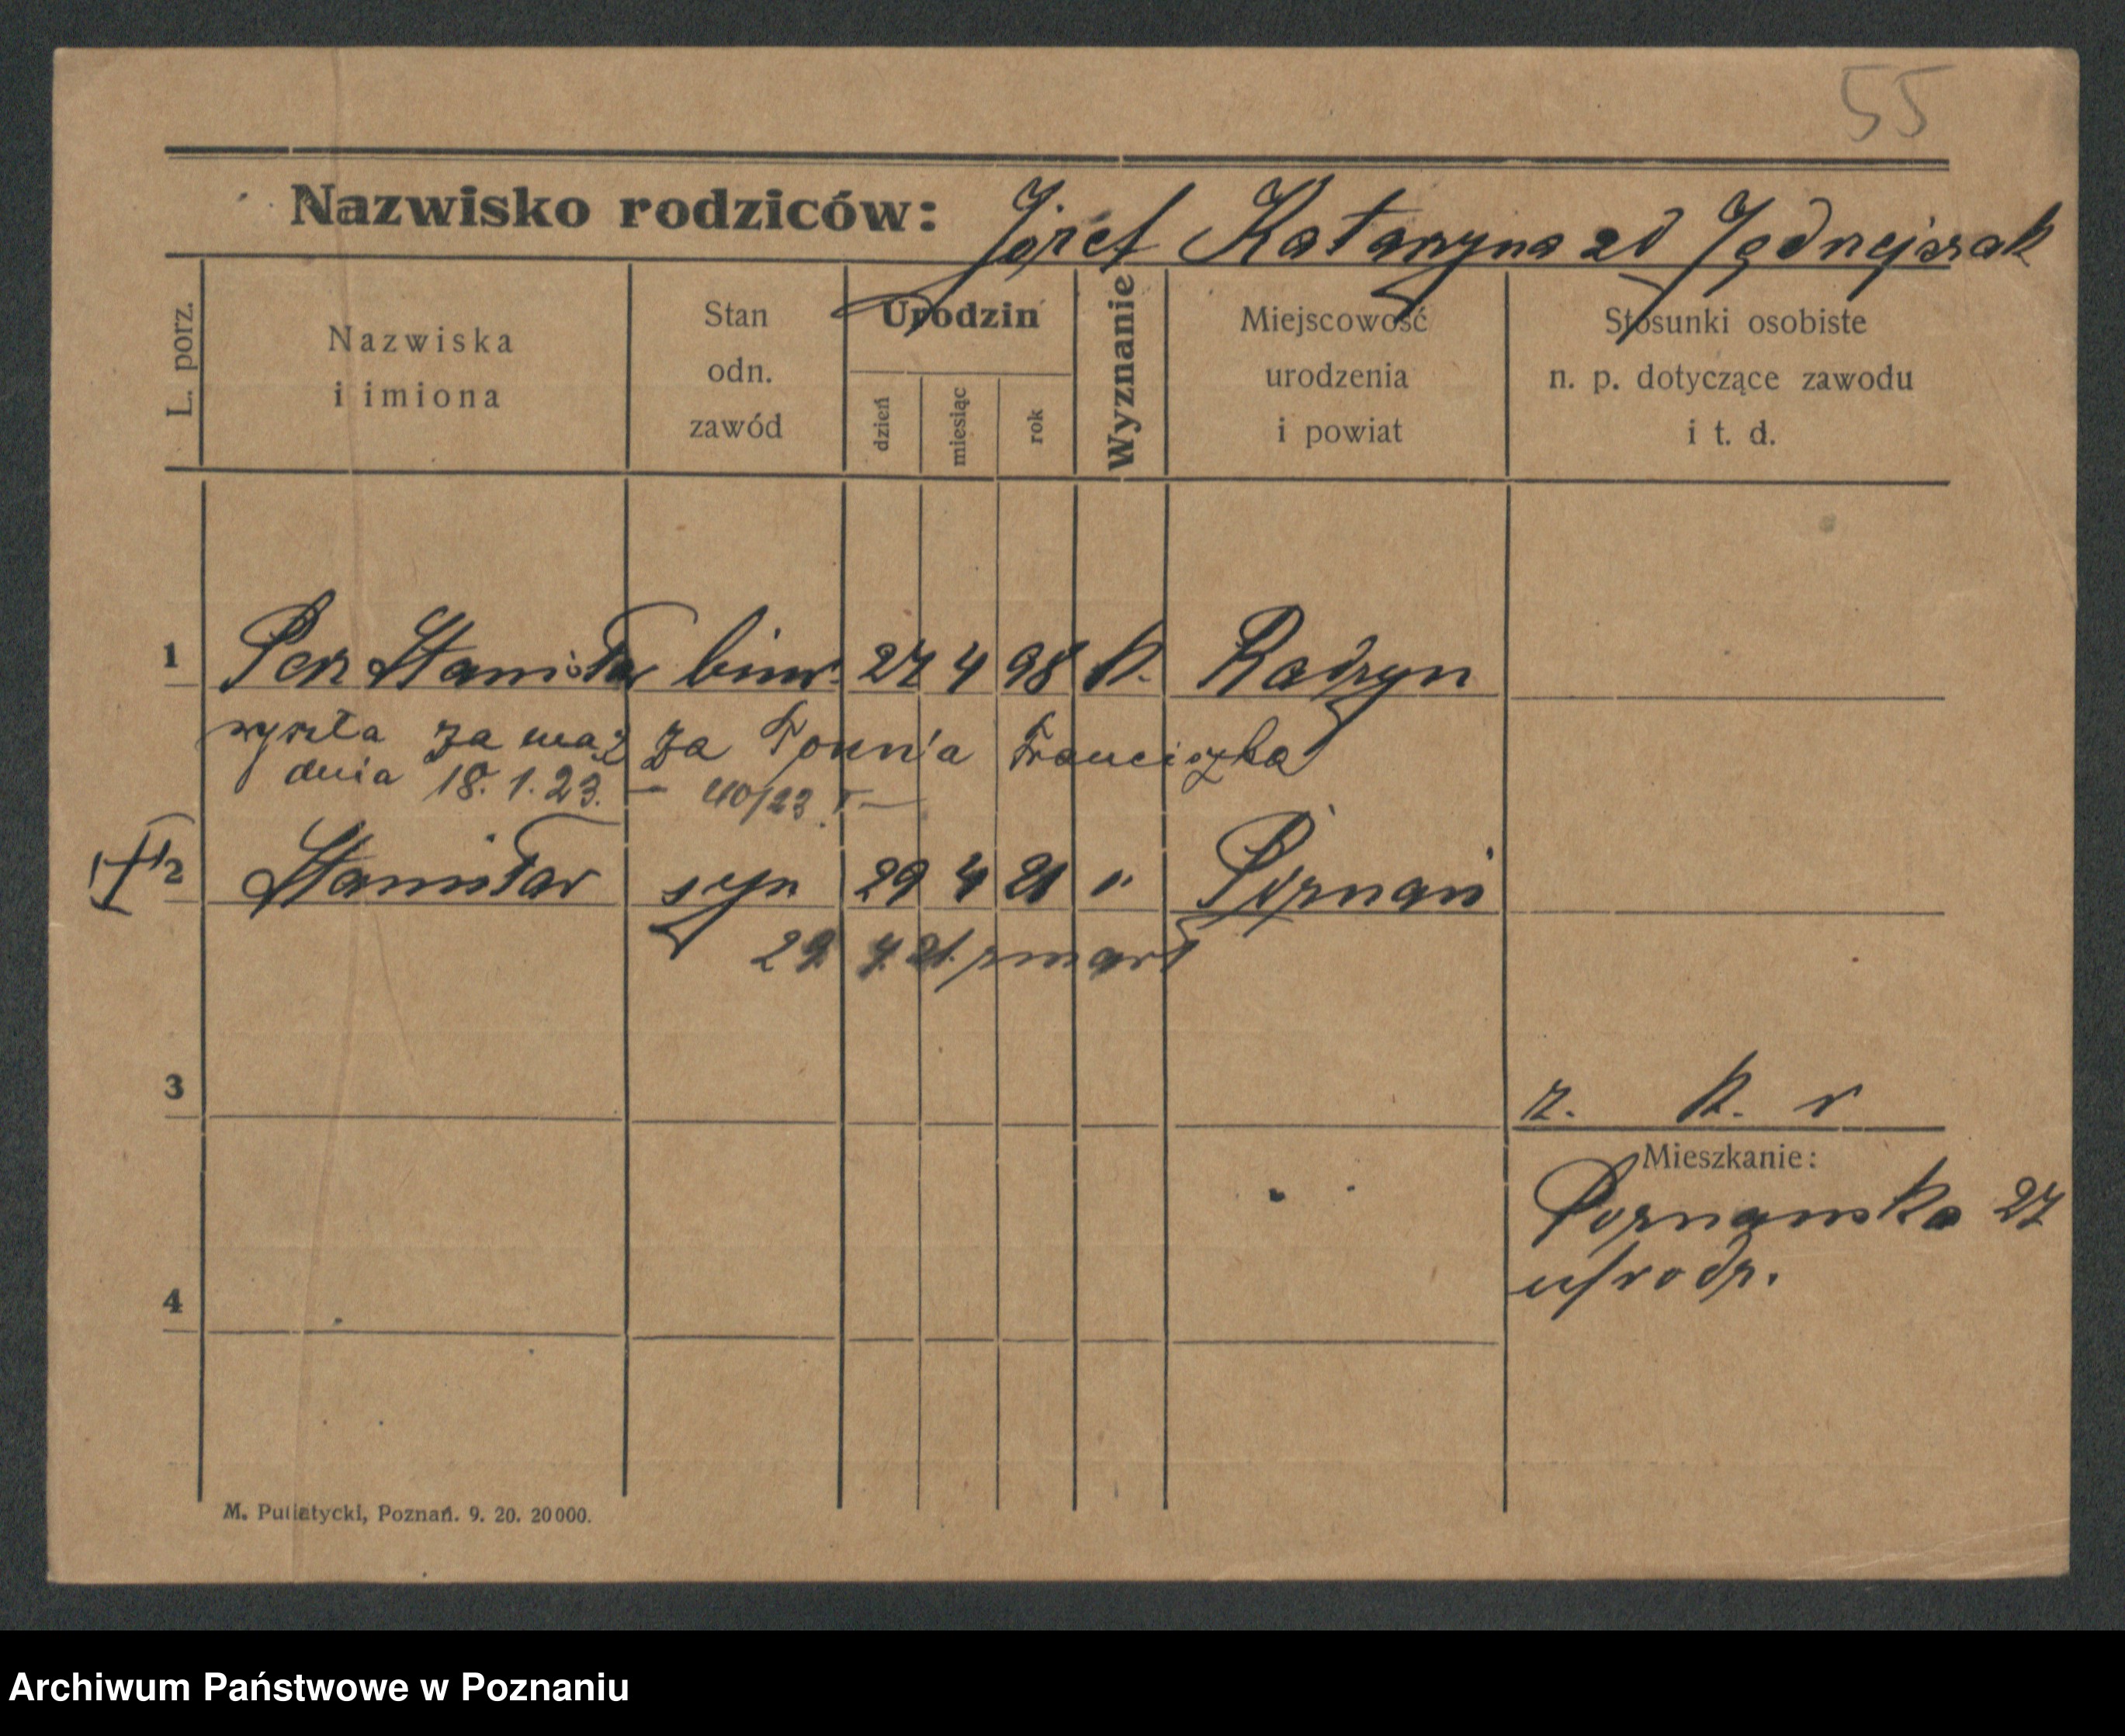 55
Nazwisko rodziców: Józef Katarzyna zd Jędrzejczak
L. porz.
Nazwiska
i imiona
Stan
odn.
zawód
Urodzin
dzień
miesiąc
rok
Wyznanie
Miejscowość
urodzenia
i powiat
Stosunki osobiste
n. p. dotyczące zawodu
i t. d.
1 Stanisław biur. 27 4 98 k. Radzyn
wyszła za mąż za Franciszka
dnia 18.1.23. — 40/23
2 Stanisław syn 29 4 21 " Poznań
29 4. 21. zmarł
3
r. k. r
Mieszkanie:
Poznańska 27
u/rodz.
4
M. Putiatycki, Poznań. 9. 20. 20000.
Archiwum Państwowe w Poznaniu